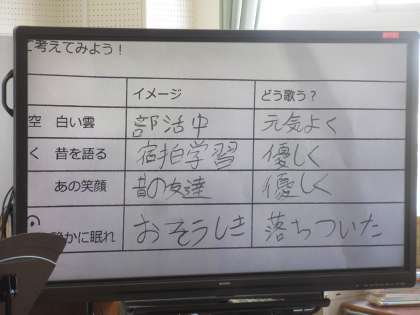 て考えてみよう！
イメージ どう歌う？
空 白い雲 部活中 元気よく
く 昔を語る 宿泊学習 優しく
あの笑顔 昔の友達 優しく
静かに眠れ おそうしき 落ちついた